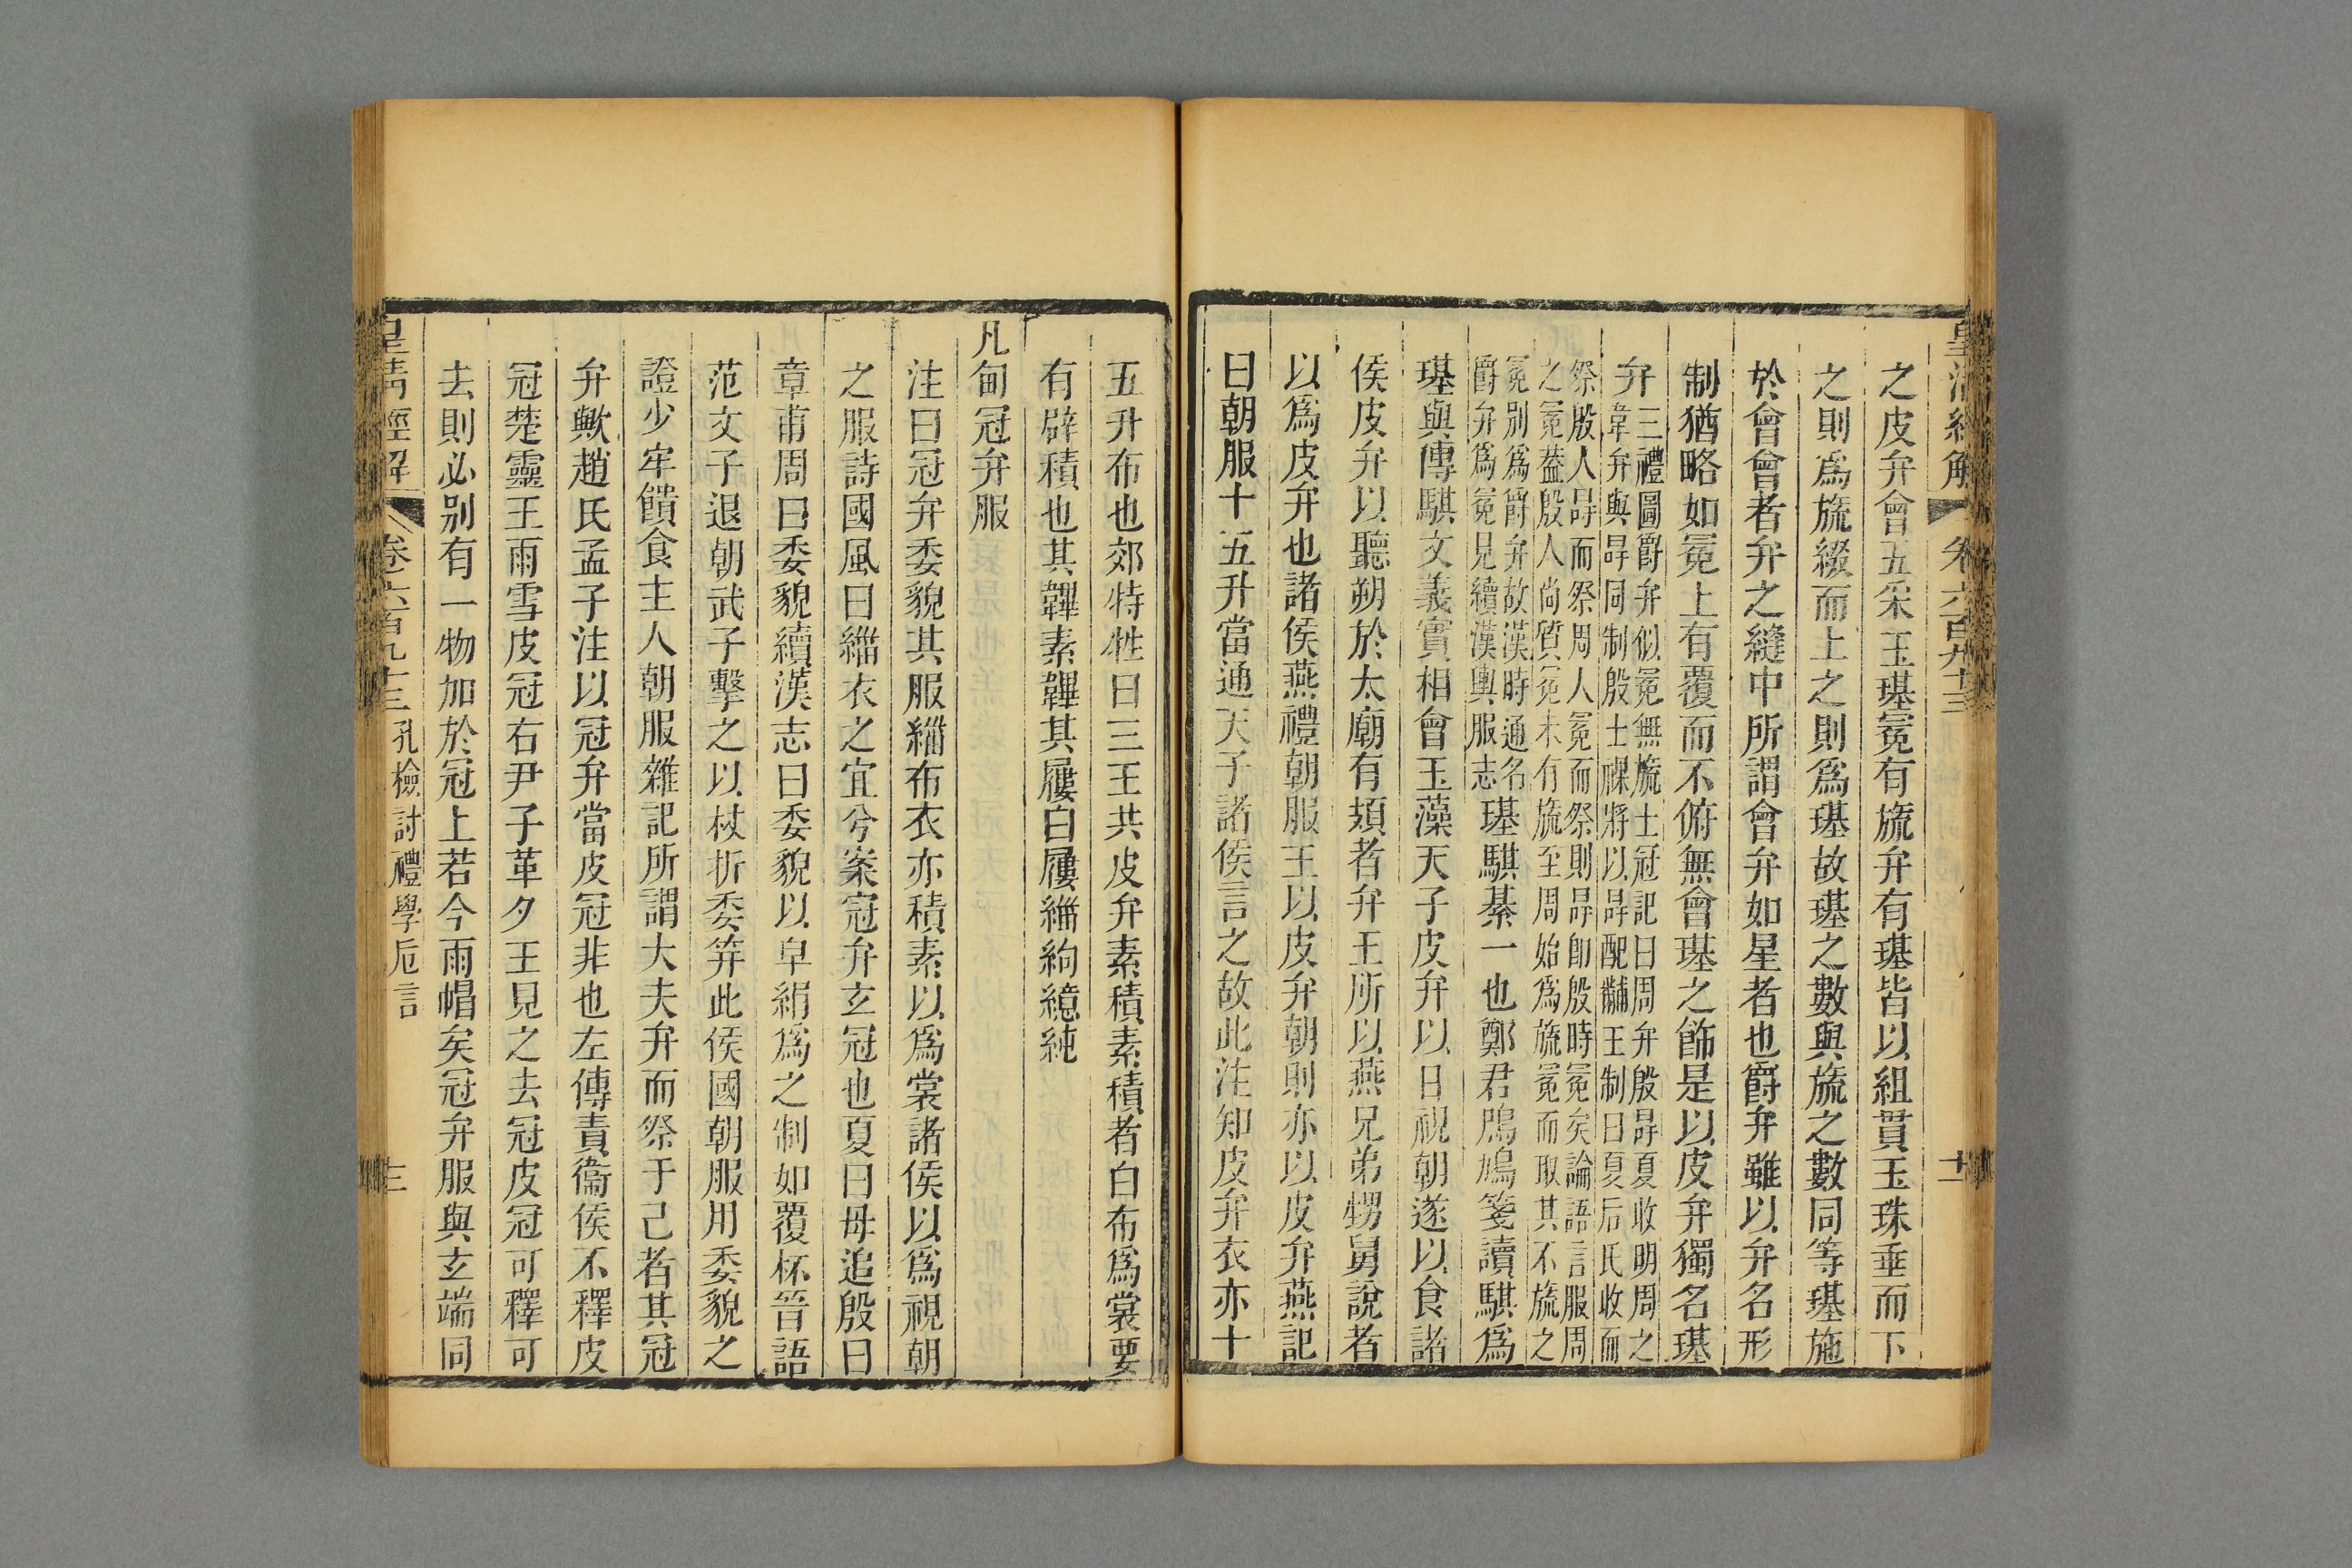 皇清經解 卷六百九十三 十二
之皮弁會五采玉璂冕有旒弁有璂皆以組貫玉珠垂而下
之則爲旒綴而上之則爲璂故璂之數與旒之數同等璂施
於會會者弁之縫中所謂會弁如星者也爵弁雖以弁名形
制猶略如冕上有覆而不俯無會璂之飾是以皮弁獨名璂
弁三禮圖爵弁似冕無旒士冠記曰周弁殷冔夏收明周之
韋弁與冔同制殷士祼將以冔配黼王制曰夏后氏收而
祭殷人冔而祭周人冕而祭則冔卽殷時冕矣論語言服周
之冕葢殷人尚質冕未有旒至周始爲旒冕而取其不旒之
冕别爲爵弁故漢時通名
爵弁爲冕見續漢輿服志璂騏綦一也鄭君鳲鳩箋讀騏爲
璂與傳騏文義實相會玉藻天子皮弁以日視朝遂以食諸
侯皮弁以聽朔於太廟有頍者弁王所以燕兄弟甥舅說者
以爲皮弁也諸侯燕禮朝服王以皮弁朝則亦以皮弁燕記
曰朝服十五升當通天子諸侯言之故此注知皮弁衣亦十
五升布也郊特牲曰三王共皮弁素積素積者白布爲裳要
有辟積也其韠素韠其屨白屨緇絇繶純
凡甸冠弁服
注曰冠弁委貌其服緇布衣亦積素以爲裳諸侯以爲視朝
之服詩國風曰緇衣之宜兮案冠弁玄冠也夏曰毋追殷曰
章甫周曰委貌續漢志曰委貌以皁絹爲之制如覆杯晉語
范文子退朝武子擊之以杖折委笄此侯國朝服用委貌之
證少牢饋食主人朝服雜記所謂大夫弁而祭于己者其冠
弁歟趙氏孟子注以冠弁當皮冠非也左傳責衞侯不釋皮
冠楚靈王雨雪皮冠右尹子革夕王見之去冠皮冠可釋可
去則必别有一物加於冠上若今雨帽矣冠弁服與玄端同
皇清經解 卷六百九十三 孔檢討禮學巵言 十三